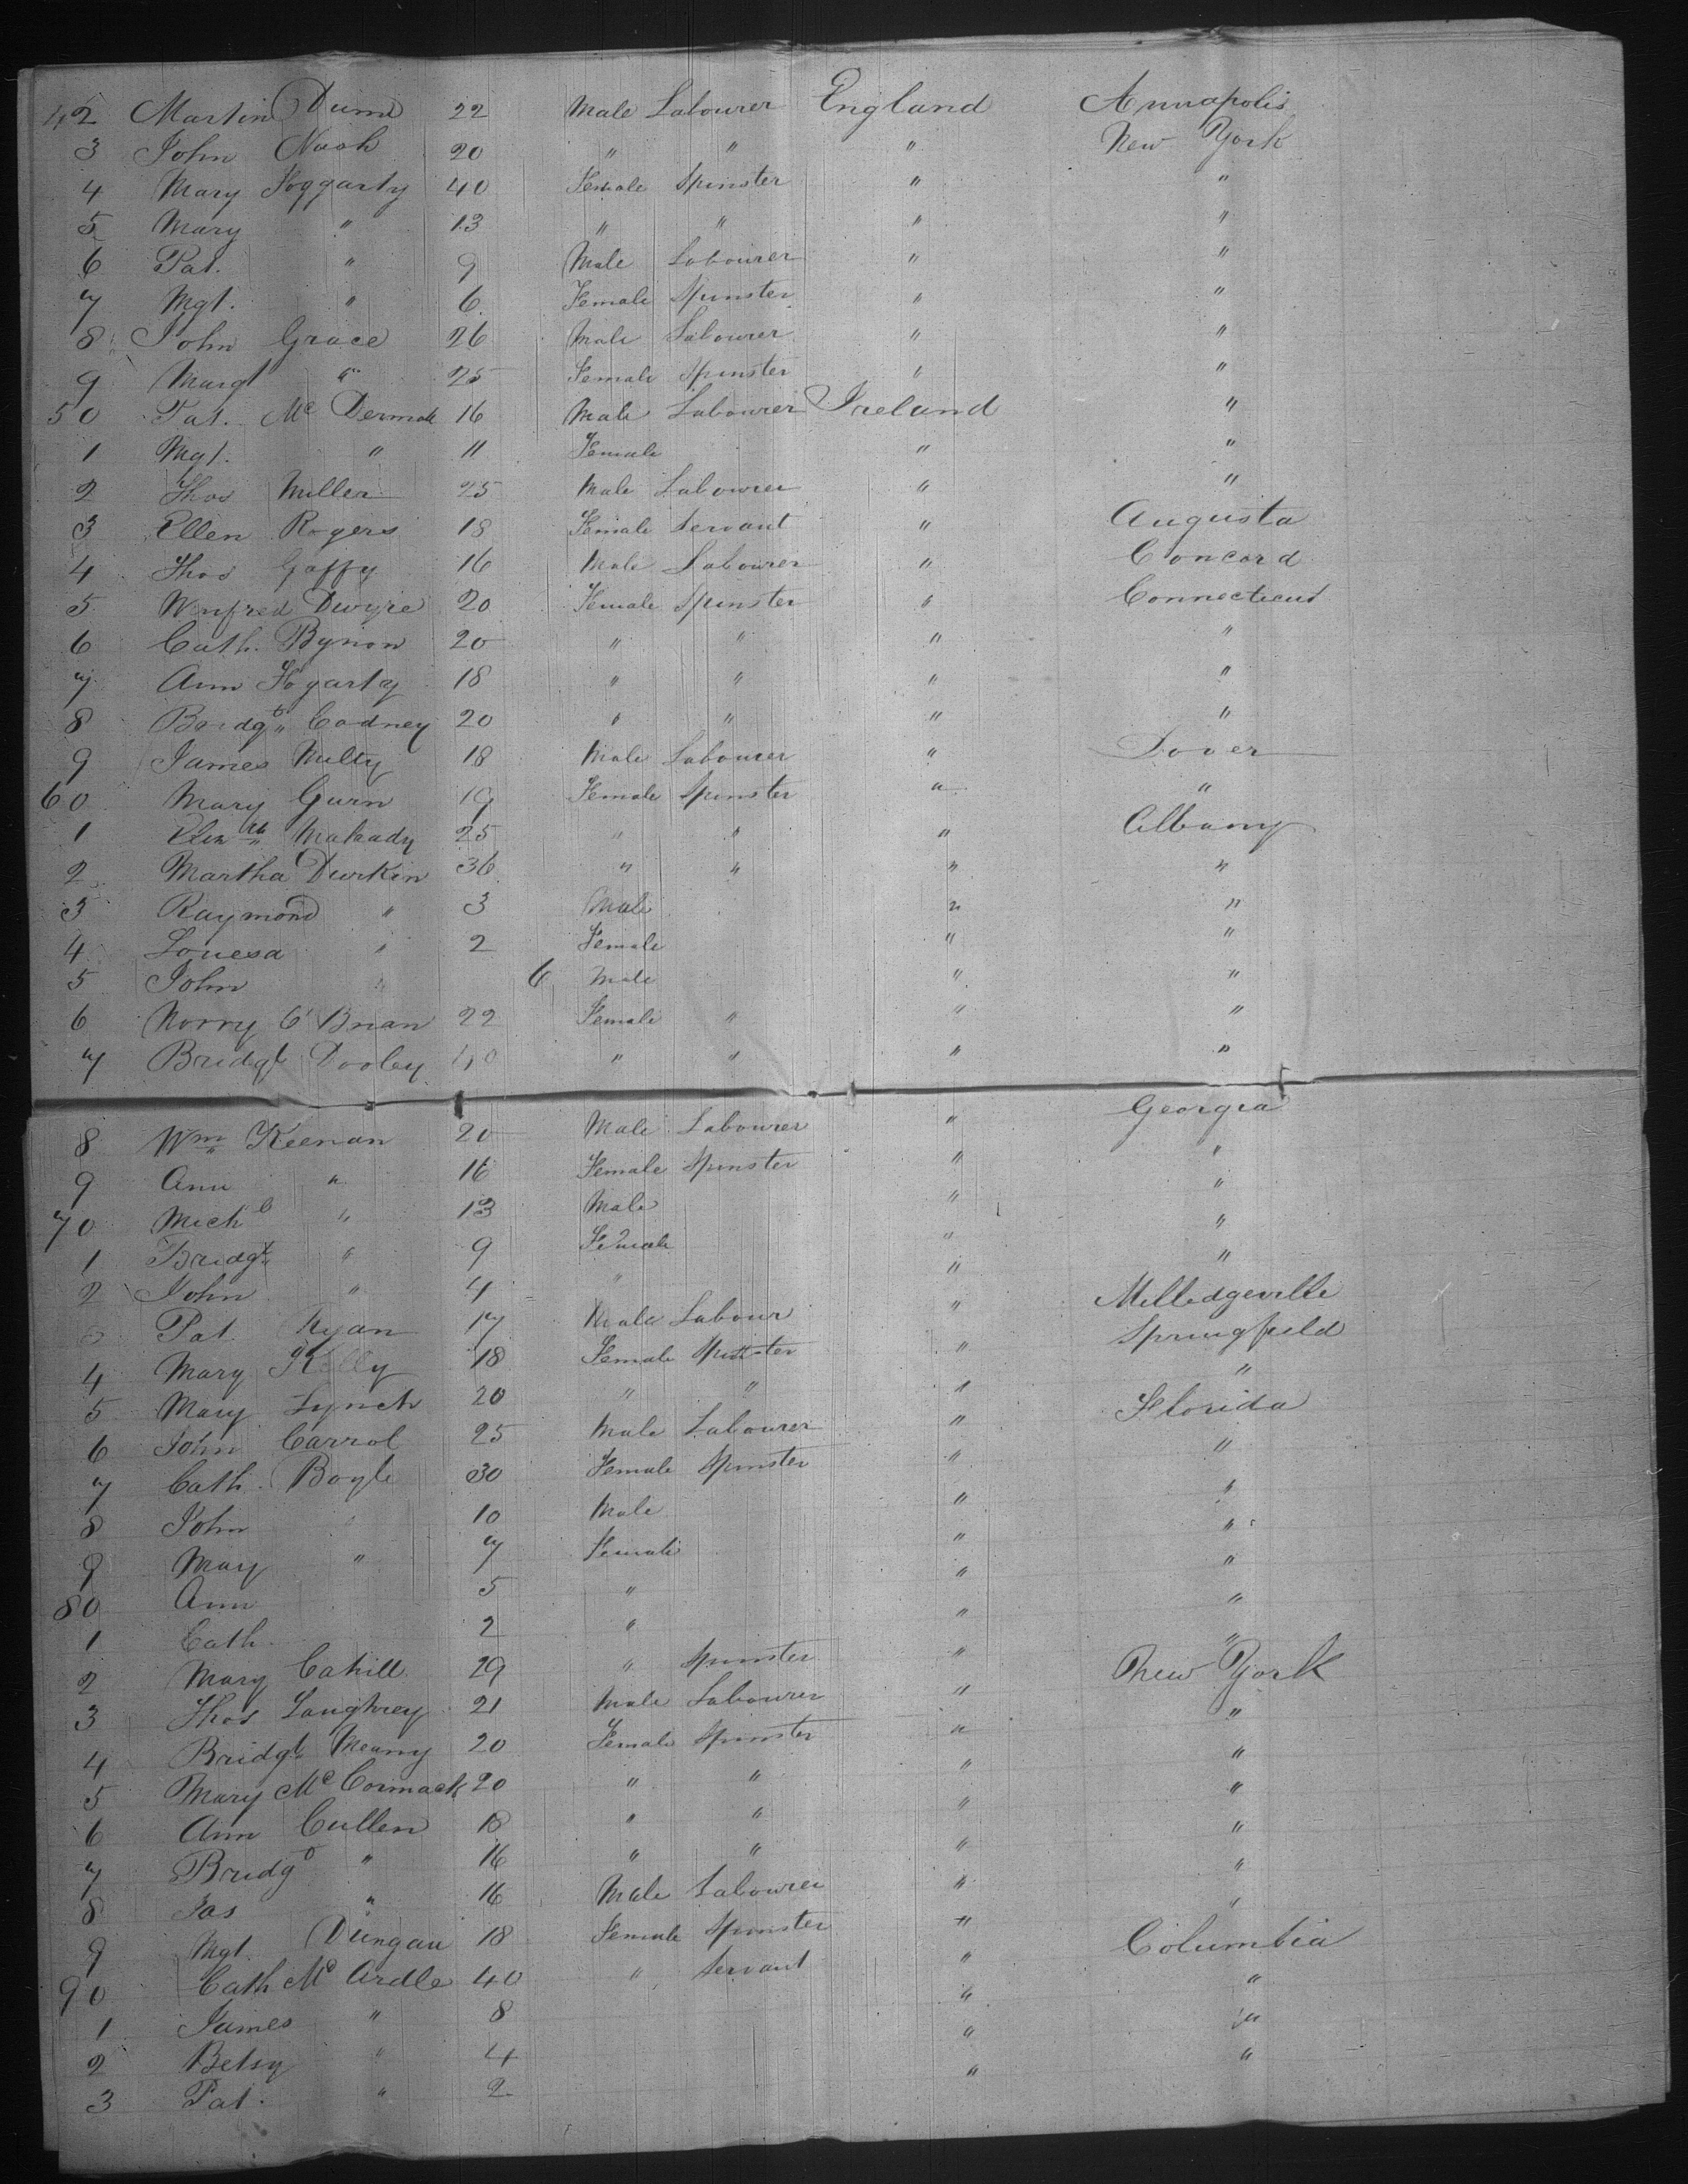 42 Martin Dunn 22 Male Labourer England Annapolis
3 John Nash 20 " " " New York
4 Mary Foggarty 40 Female Spinster " "
5 Mary " 13 " " " "
6 Pat. " 9 Male Labourer " "
7 Mgt. " 6 Female Spinster " "
8 John Grace 26 Male Labourer " "
9 Margt " 25 Female Spinster " "
50 Pat. Mc Dermott 16 Male Labourer Ireland "
1 Mgt. " 11 Female " "
2 Thos Miller 25 Male Labourer " "
3 Ellen Rogers 18 Female Servant " Augusta
4 Thos Gaffy 16 Male Labourer " Concord
5 Winfred Dwyre 20 Female Spinster " Connecticut
6 Cath. Bynon 20 " " " "
7 Ann Fogarty 18 " " " "
8 Bridgt Codney 20 " " " "
9 James Melty 18 Male Labourer " Dover
60 Mary Gurn 19 Female Spinster " "
1 Elizth Makady 25 " " " Albany
2 Martha Durkin 36 " " " "
3 Raymond " 3 Male " "
4 Louesa " 2 Female " "
5 John " 6 Male " "
6 Norry O'Brian 22 Female " " "
7 Bridgt Dooley 40 " " " "
8 Wm Keenan 20 Male Labourer " Georgia
9 Ann " 16 Female Spinster " "
70 Michl " 13 Male " "
1 Bridgt " 9 Female " "
2 John " 4 " " "
Pat. Ryan 17 Male Labour " Milledgeville
4 Mary Kelly 18 Female Spinster " Springfield
5 Mary Lynch 20 " " " "
6 John Carrol 25 Male Labourer " Florida
7 Cath. Boyle 30 Female Spinster " "
8 John " 10 Male " "
9 Mary " 7 Female " "
80 Ann 5 " " "
1 Cath. 2 " " "
2 Mary Cahill 29 " Spinster " "
3 Thos Loughrey 21 Male Labourer " New York
4 Bridgt Meany 20 Female Spinster " "
5 Mary Mc Cormack 20 " " " "
6 Ann Cullen 18 " " " "
7 Bridgt " 16 " " " "
8 Jas " 16 Male Labourer " "
9 Mgt. Dungan 18 Female Spinster " "
90 Cath Mc Ardle 40 " Servant " Columbia
1 James " 8 " "
2 Betsy " 4 " "
3 Pat. " 2 " "